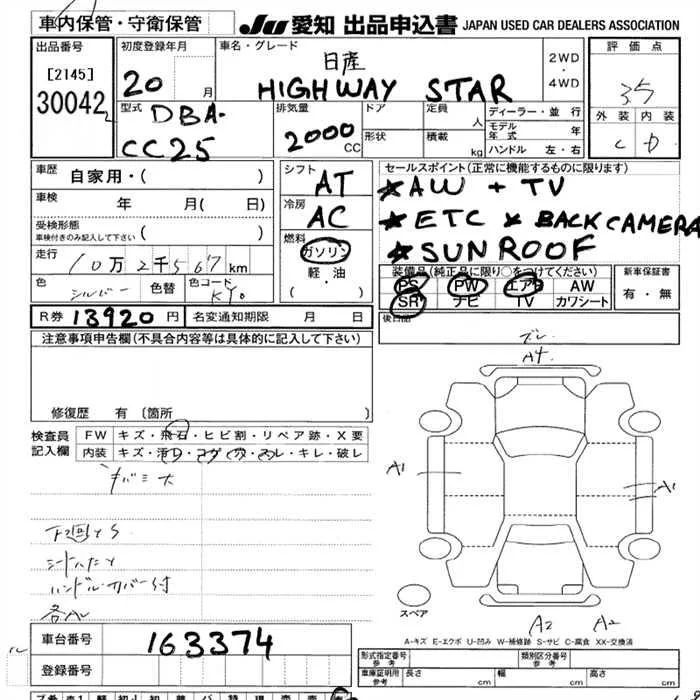 車内保管・守衛保管
JU 愛知 出品申込書 JAPAN USED CAR DEALERS ASSOCIATION
出品番号
[2145]
30042
初度登録年月
20 月
車名・グレード
日産
HIGHWAY STAR
2WD
・
4WD
評価点
3.5
外装 内装
C D
型式
DBA-
CC25
排気量
2000
CC
ドア
形状
定員 人
積載 kg
ディーラー・並行
モデル年式 年
ハンドル 左・右
車歴
自家用・( )
車検 年 月( 日)
受検形態
車検付きのみ記入して下さい ( )
走行 10万2千567km
色 シルバー 色替 色コード KY0
シフト
AT
冷房
AC
燃料
ガソリン
軽・油
( ・ )
セールスポイント(正常に機能するものに限ります)
★AW + TV
★ETC ★ BACKCAMERA
★SUNROOF
装備品(純正品に限り○をつけてください)
PS PW エアB AW
SR ナビ TV カワシート
新車保証書
有・無
R券 13920 円 名変通知期限 月 日
後日品
注意事項申告欄(不具合内容等は具体的に記入して下さい)
修復歴 有 [箇所 ]
検査員
記入欄
FW キズ・飛石・ヒビ割・リペア跡・X要
内装 キズ・汚レ・コゲ・穴・スレ・キレ・破レ
ズレ
A4
A1
A1
A2 A2
スペア
ハンドルカバー付
A-キズ E-エクボ U-凹ミ W-補修跡 S-サビ C-腐食 XX-交換済
車台番号 163374
登録番号
形式指定番号
参考
類別区分番号
参考
車庫証明用
参考
長さ cm 幅 cm 高さ cm